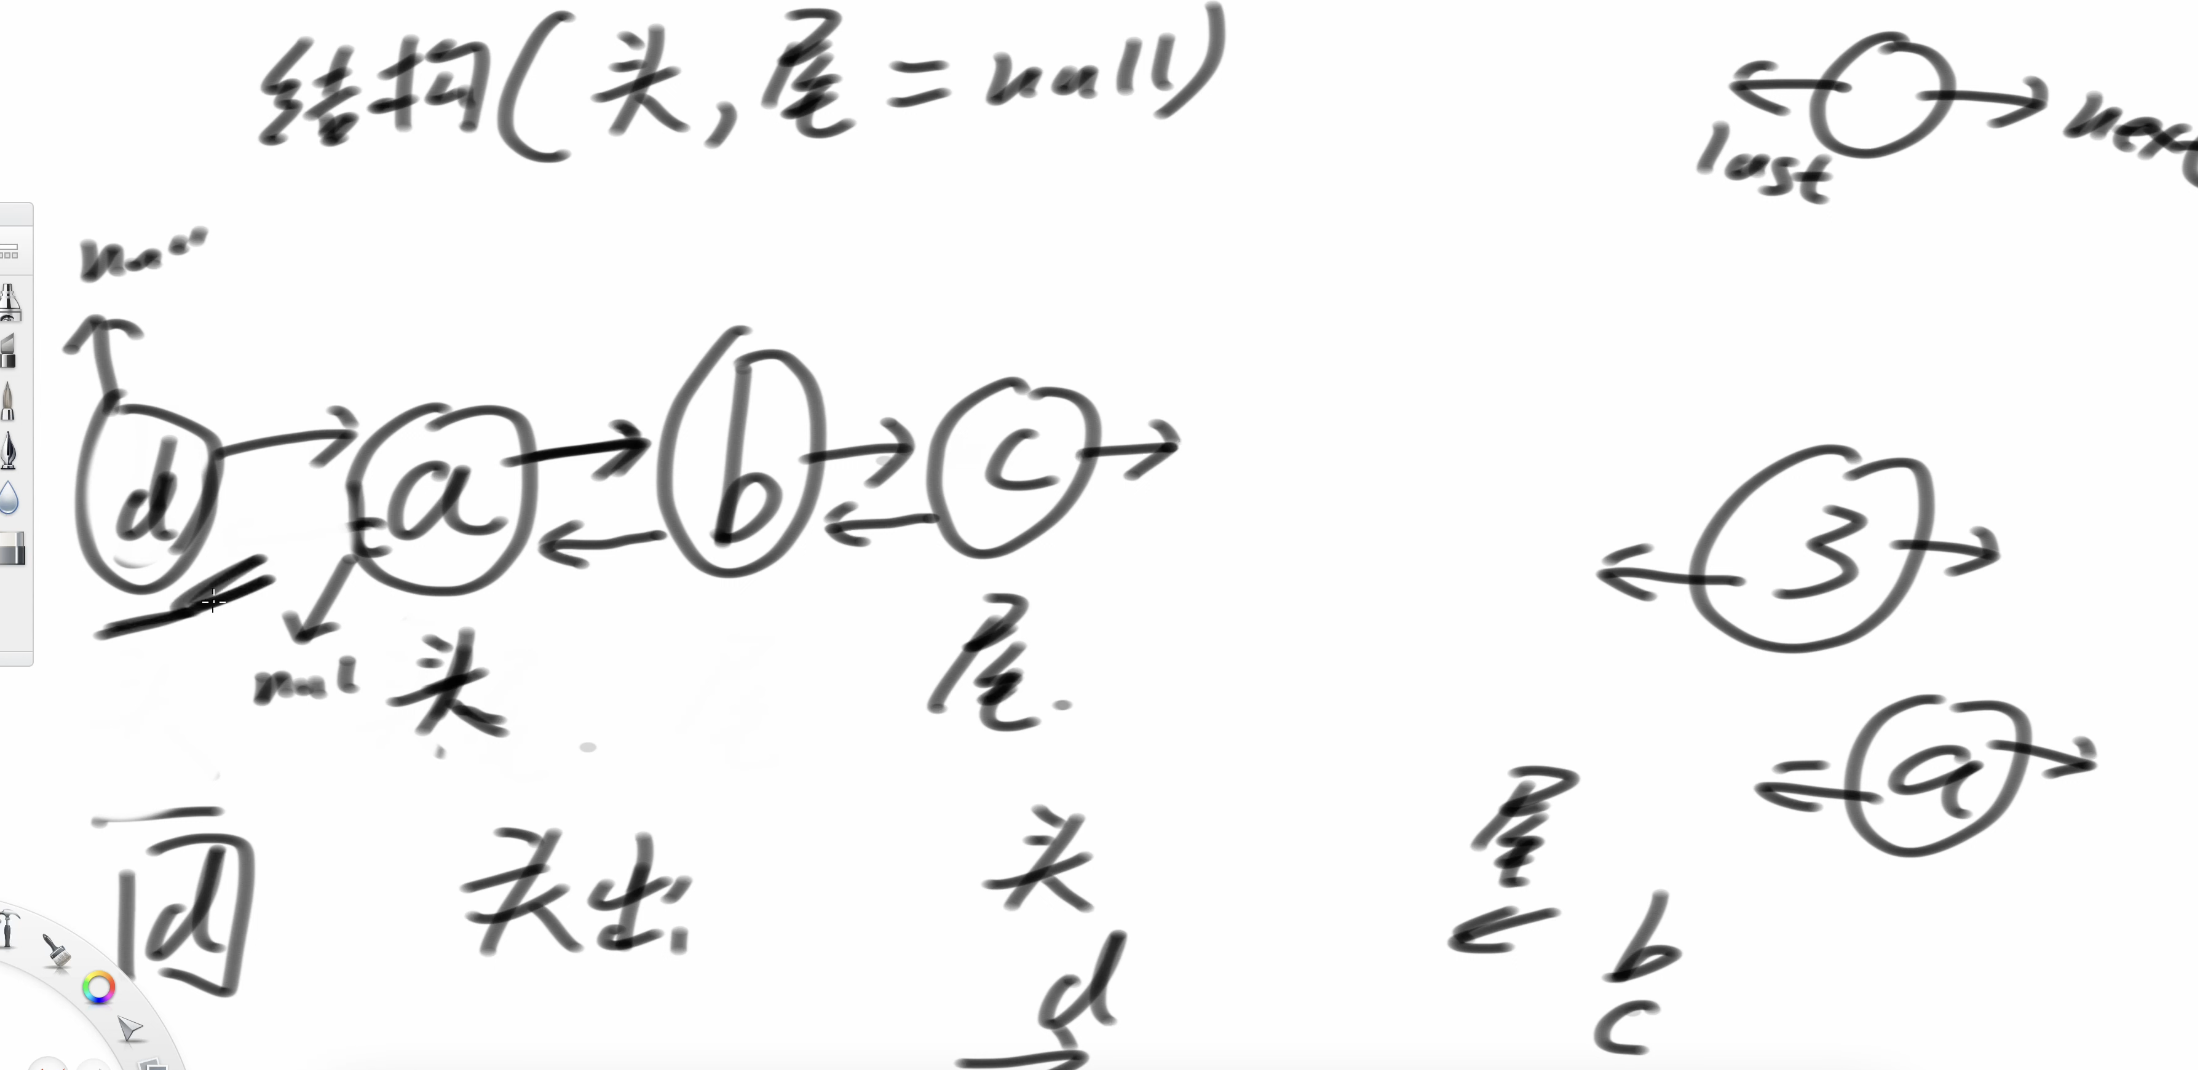 结构(头,尾=null)
last
next
d
a
b
c
3
nul
头
尾.
a
d
头出
头
尾
d
b
c